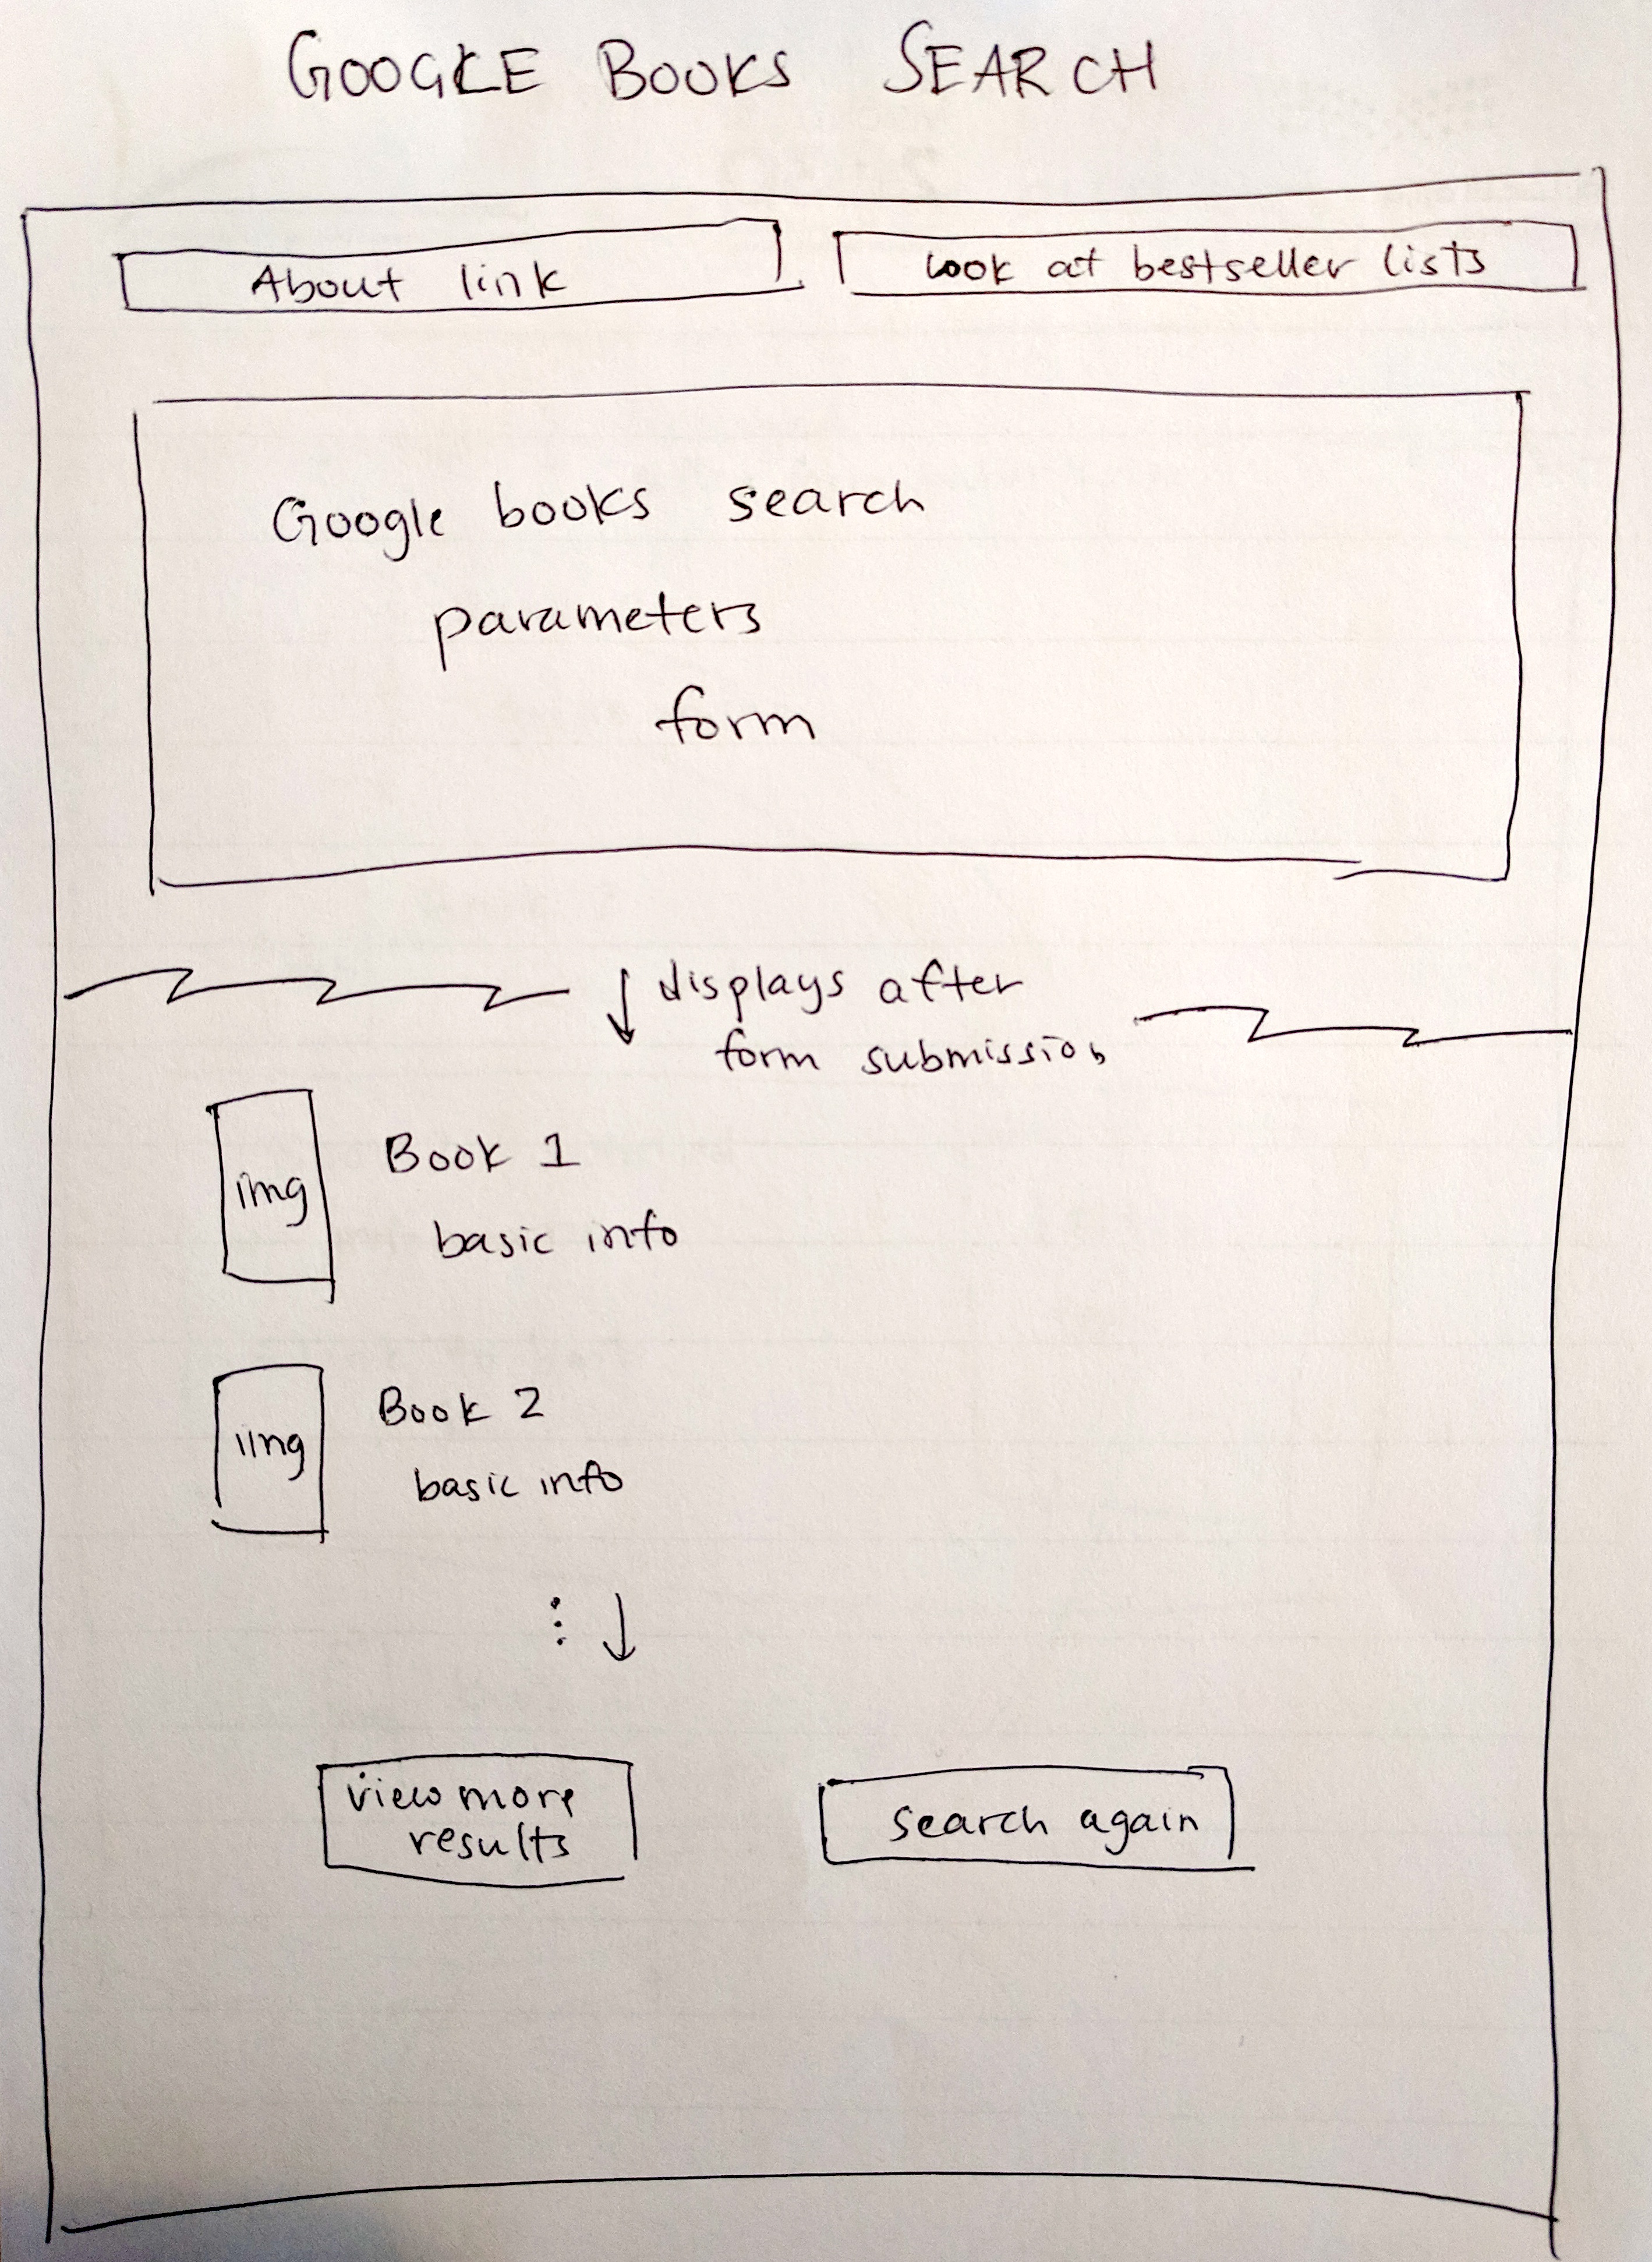 GOOGLE BOOKS SEARCH
About link
Look at bestseller lists
Google books search
parameters
form
↓ displays after
form submission
img
Book 1
basic info
img
Book 2
basic info
⋮ ↓
view more
results
search again